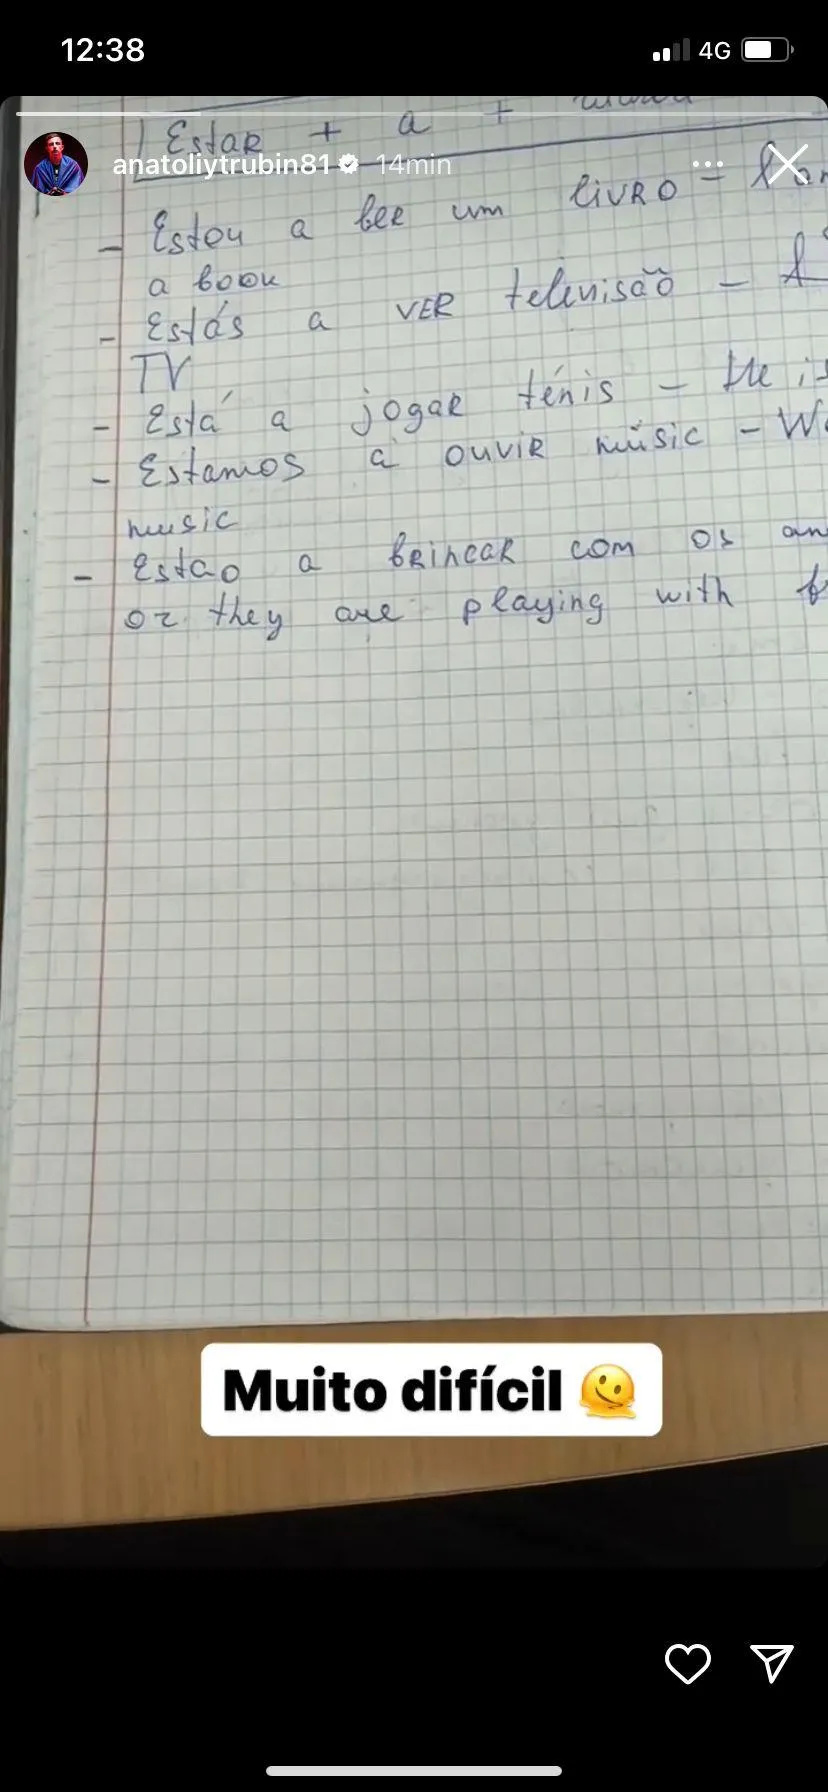 12:38
4G
Estar + a +
anatoliytrubin81 14min
- Estou a ler um livro -
a book
- Estás a ver televisão -
TV
- Está a jogar ténis - He is
- Estamos a ouvir músic - We
music
- Estao a brincar com os
or they are playing with
Muito difícil 🫠